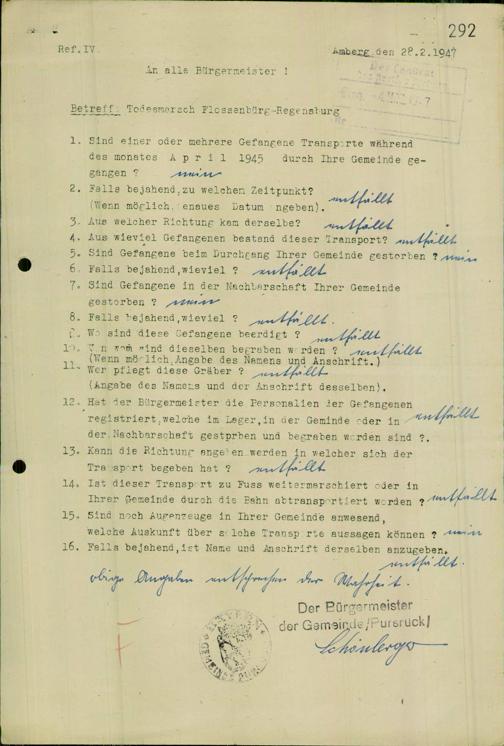 292
Ref.IV.
Amberg, den 28.2.1947
An alle Bürgermeister !
Der Landrat
Betreff: Todesmarsch Flossenbürg-Regensburg
1. Sind einer oder mehrere Gefangene Transporte während
des monates April 1945 durch Ihre Gemeinde ge-
gangen ? nein
2. Falls bejahend,zu welchem Zeitpunkt?
(Wenn möglich, enaues Datum ngeben). entfällt
3. Aus welcher Richtung kam derselbe? entfällt
4. Aus wieviel Gefangenen bestand dieser Transport? entfällt
5. Sind Gefangene beim Durchgang Ihrer Gemeinde gestorben ? nein
6. Falls bejahend,wieviel ? entfällt
7. Sind Gefangene in der Nachbarschaft Ihrer Gemeinde
gestorben ? nein
8. Falls bejahend,wieviel ? entfällt.
9. Wo sind diese Gefangene beerdigt ? entfällt
10. Von wem sind dieselben begraben worden ? entfällt
(Wenn möglich,Angabe des Namens und Anschrift.)
11. Wer pflegt diese Gräber ? entfällt
(Angabe des Namens und der Anschrift desselben).
12. Hat der Bürgermeister die Personalien der Gefangenen
registriert,welche im Lager,in der Geminde oder in entfällt
der Nachbarschaft gestprben und begraben worden sind ?.
13. Kann die Richtung angeben werden in welcher sich der
Transport begeben hat ? entfällt
14. Ist dieser Transport zu Fuss weitermarschiert oder in
Ihrer Gemeinde durch die Bahn abtransportiert worden ? entfällt
15. Sind noch Augenzeuge in Ihrer Gemeinde anwesend,
welche Auskunft über solche Transporte aussagen können ? nein
16. Falls bejahend,ist Name und Anschrift derselben anzugeben.
entfällt.
obige Angaben entsprechen der Wahrheit.
Der Bürgermeister
der Gemeinde/Pursruck/
Schönberger
BAYERN
GEMEINDE
F